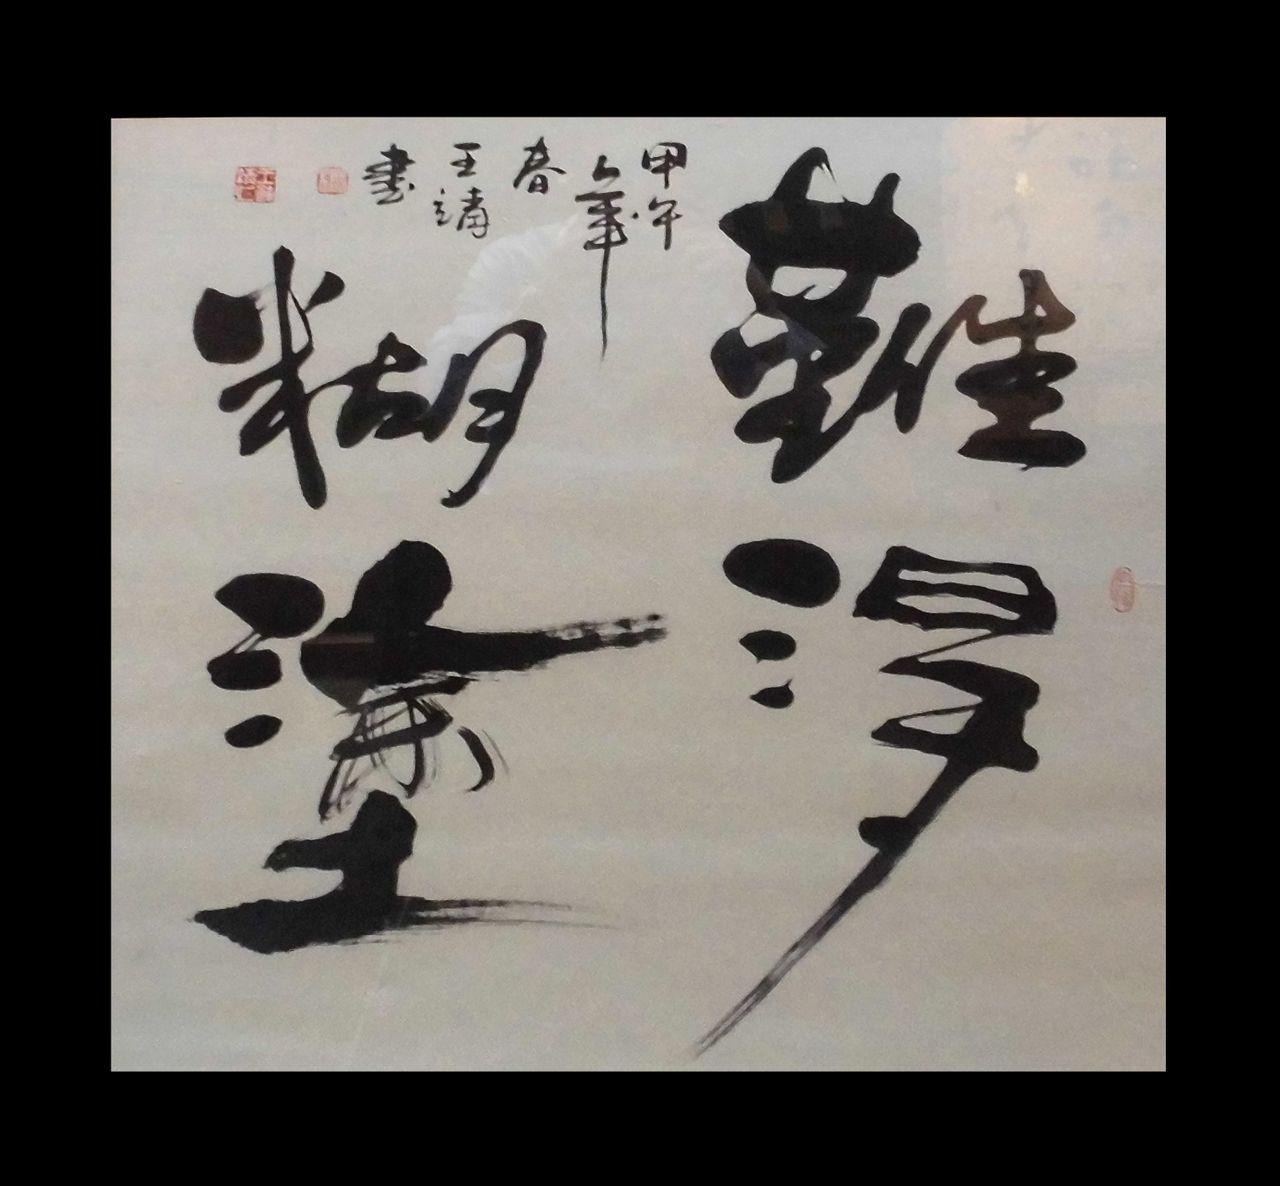 難得
糊塗
甲午
年
春
王靖
書